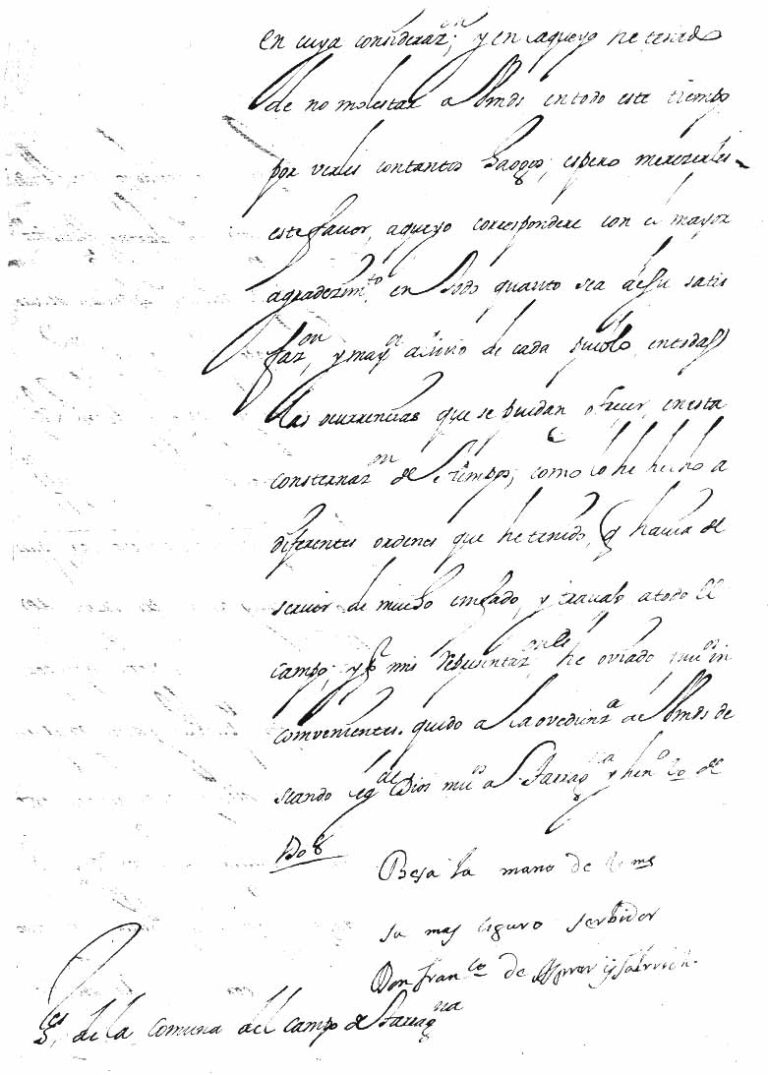 en cuya consideraz.on, y en aqueyo he tenido
de no molestar a Vmds en todo este tiempo
por verles con tantos ; espero merezerles
este favor, aqueyo correspondere con el mayor
agradezim.to en todo quanto sea de su satis
faz.on, y may.or alivio de cada pueblo, en todas
las ocurrencias que se puedan ofrecer, en esta
consternaz.on de tiempos, como lo he hecho a
diferentes ordenes que he tenido, q havia de
servir de mucho enfado, y travajo a todo el
campo; y p mis he oviado mu.os in
comvenientes. quedo a la ovedienz.a de Vmds de
seando les g.de Dios mu.s a.s Tarrag.a y hen.o 20 de
1708
Besa la mano de Vms
su mas siguro serbidor
Don fran.co de
S.res de la Comuna del Campo de Tarrag.na